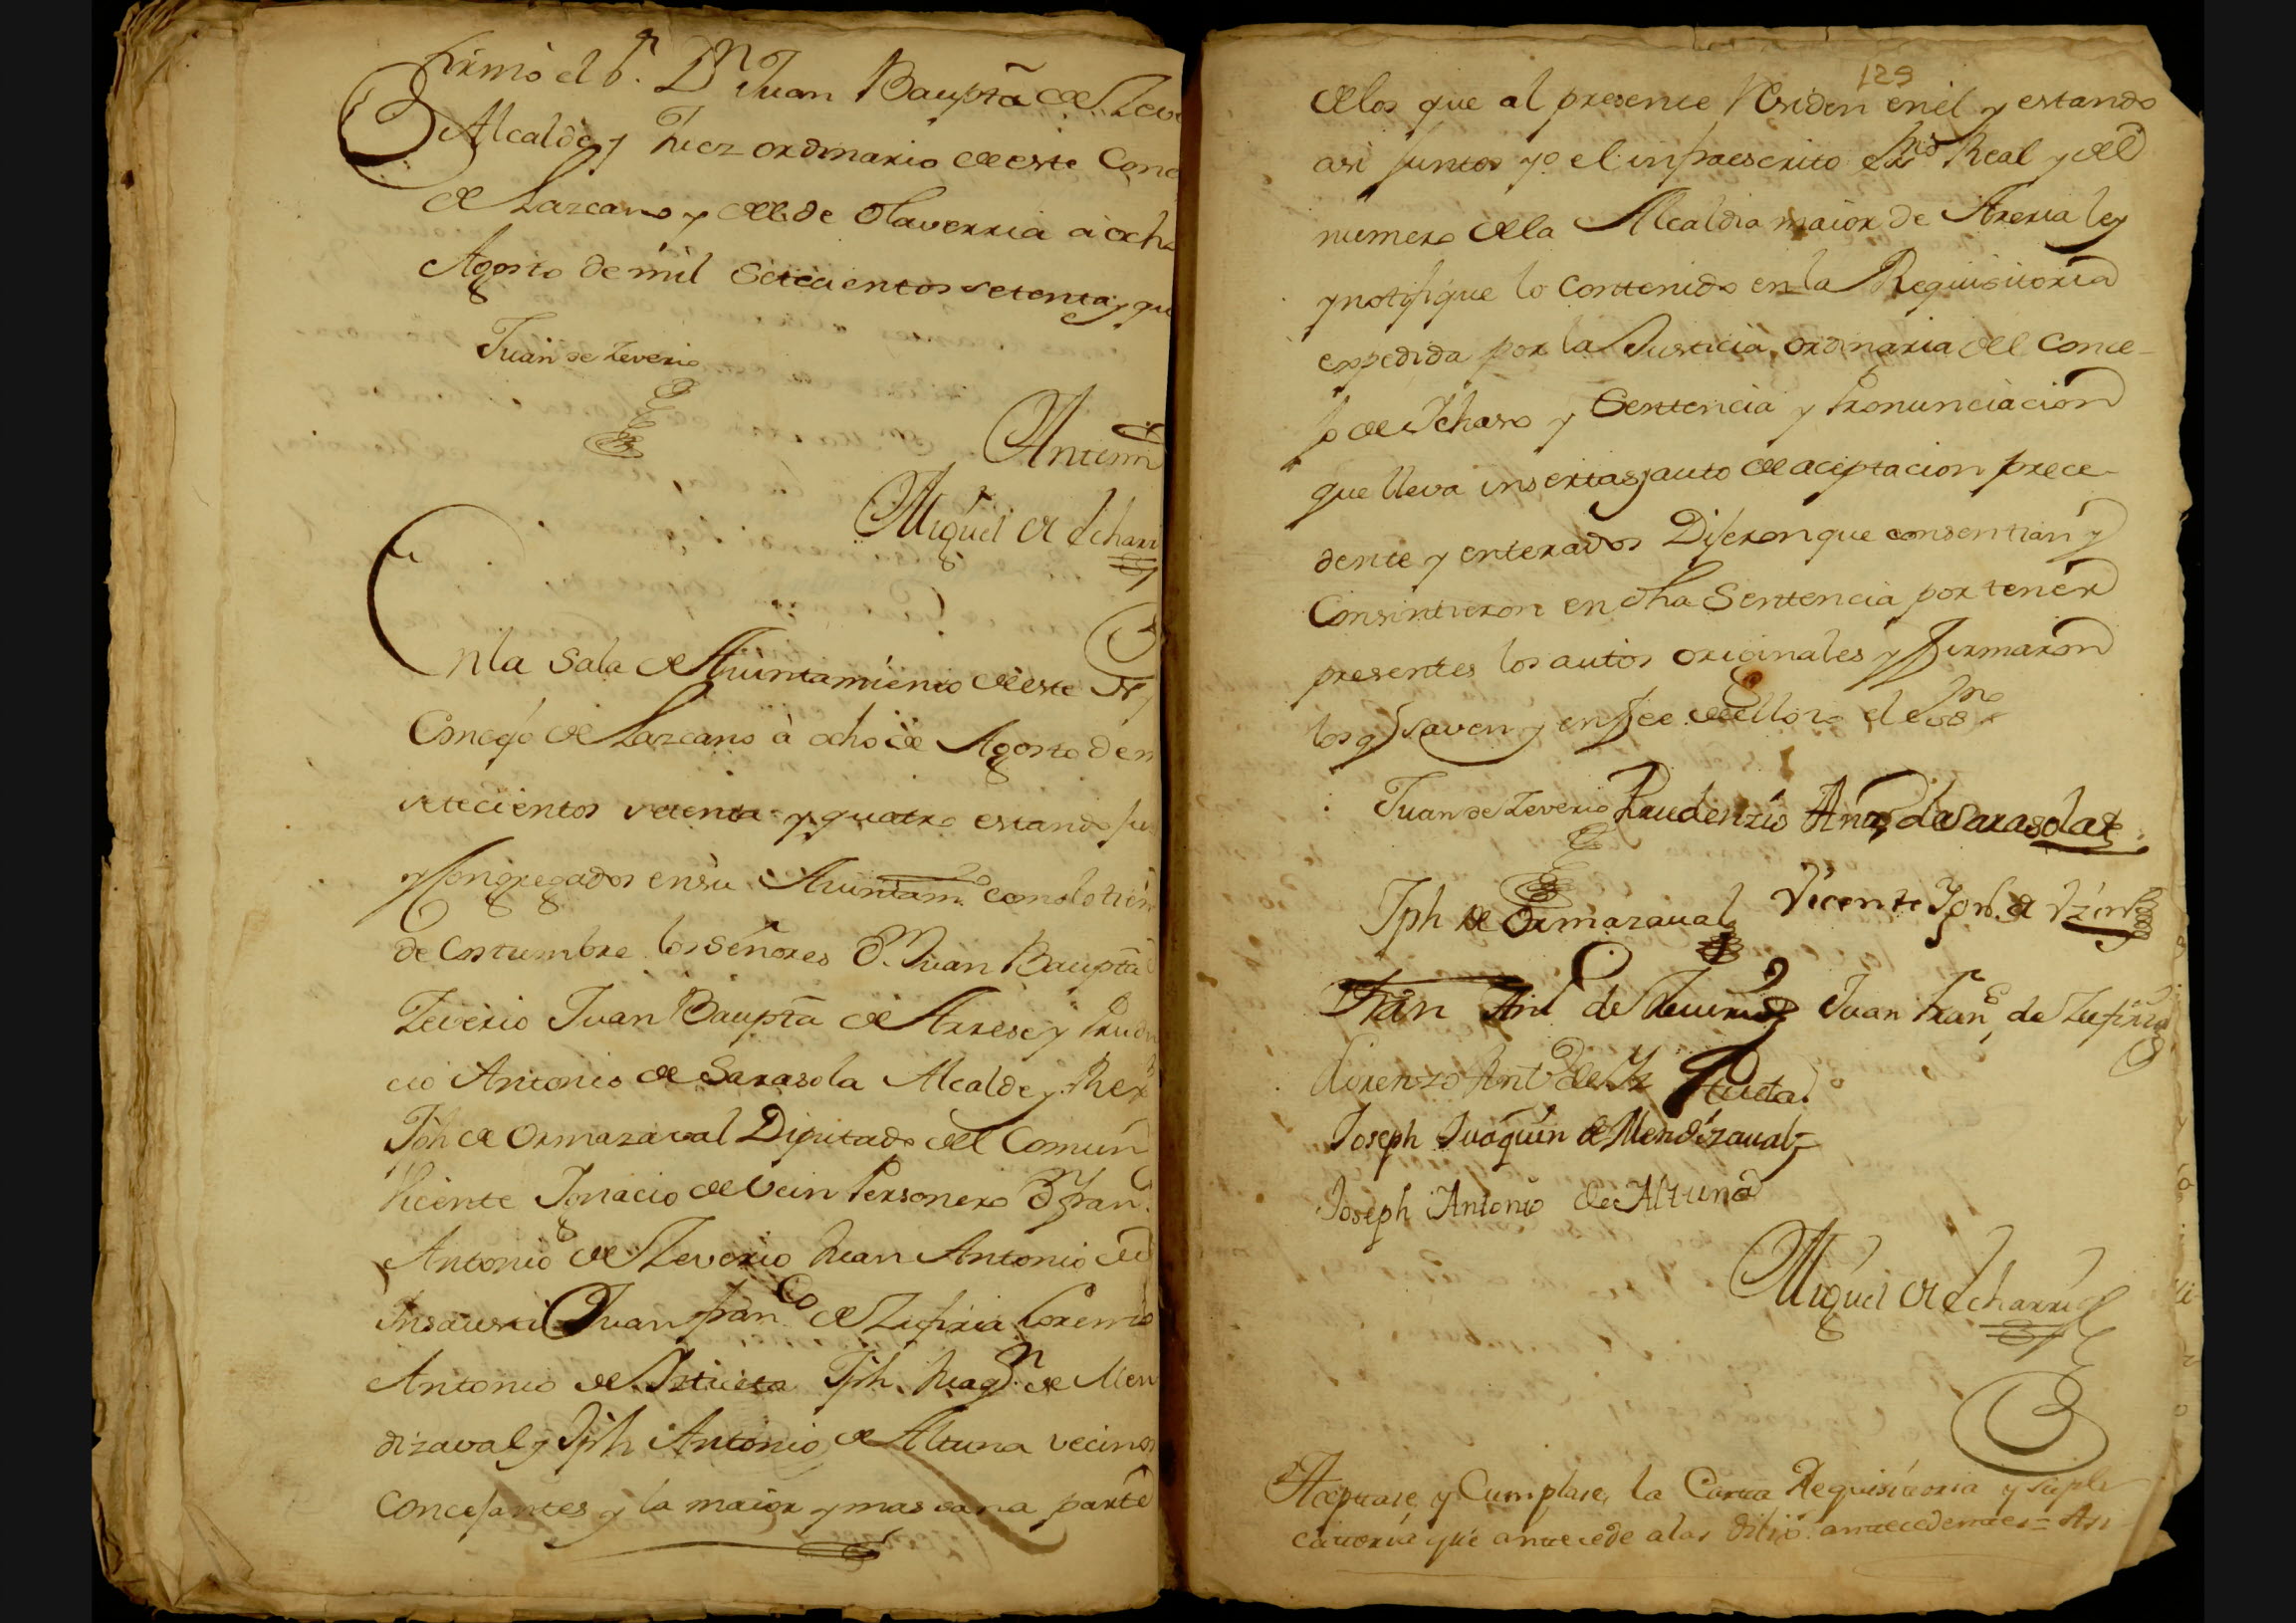 firmó el S.r D.n Juan Baupta de Zeve
Alcalde y Juez ordinario de este Conc
de Lazcano y del de Olaverria à ocho
Agosto de mil setecientos setenta y qu
Juan de Zeverio
Antemi
Miguel de Echarri
En la Sala de Aiuntamiento de este
Concejo de Lazcano à ocho de Agosto de m
setecientos setenta y quatro estando ju
y Congregados en su Aiuntam.to como lo tien
de costumbre los señores D.n Juan Baupta
Zeverio Juan Baupta de Arrese y Pruden
cio Antonio de Sarasola Alcalde y Rex
Jph de Ormazaval Diputado del Comun
Vicente Ignacio de Vcin Personero D.n Fran.co
Antonio de Zeverio Juan Antonio de
Insausti Juan Fran.co de Zufiria Lorenzo
Antonio de Iztueta Jph. Juaq.n de Men
dizaval y Jph Antonio de Altuna vecinos
concejantes y la maior y mas sana parte
129
de los que al presente Residen en él y estando
asi juntos yo el infraescrito ess.no Real y del
numero de la Alcaldia maior de Areria ley
y notifique lo contenido en la Requisitoria
expedida por la Justicia ordinaria del Conce-
jo de Ichaso y Sentencia y Pronunciacion
que lleva insertas y auto de aceptacion prece-
dente y enterados Dijeron que consentian y
Consintieron en dha Sentencia por tener
presentes los autos originales y firmaron
los q saven y en fee de ello io el ess.no
Juan de Zeverio Prudenzio Ant.o de Sarasola
Jph de Ormazaval Vicente Ign.o de Vzin
Fran Ant de Zeverio Juan Fran.co de Zufiria
Lorenzo Ant.o de Yztueta
Joseph Juaquin de Mendizaval
Joseph Antonio de Altuna
Miguel de Echarri
Aceptase y Cumplase, la Carta Requisitoria y supli
catoria que antecede a las antecedentes = Asi